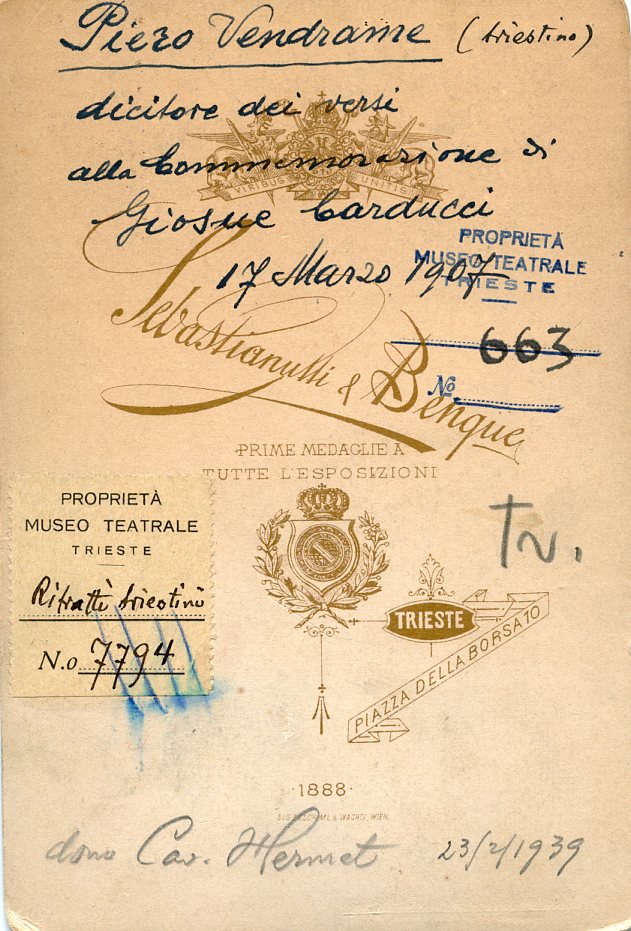 Piero Vendrame (triestino)
dicitore dei versi
alla Commemorazione di
VIRIBUS UNITIS
Giosue Carducci
17 Marzo 1907
PROPRIETÀ
MUSEO TEATRALE
TRIESTE
663
No.
Sebastianutti & Benque
PRIME MEDAGLIE A
TUTTE L'ESPOSIZIONI
PROPRIETÀ
MUSEO TEATRALE
TRIESTE
Ritratti triestini
N.o 7794
Tv.
TRIESTE
PIAZZA DELLA BORSA 10
·1888·
& WACHTL, WIEN.
dono Cav. Hermet 23/2/1939